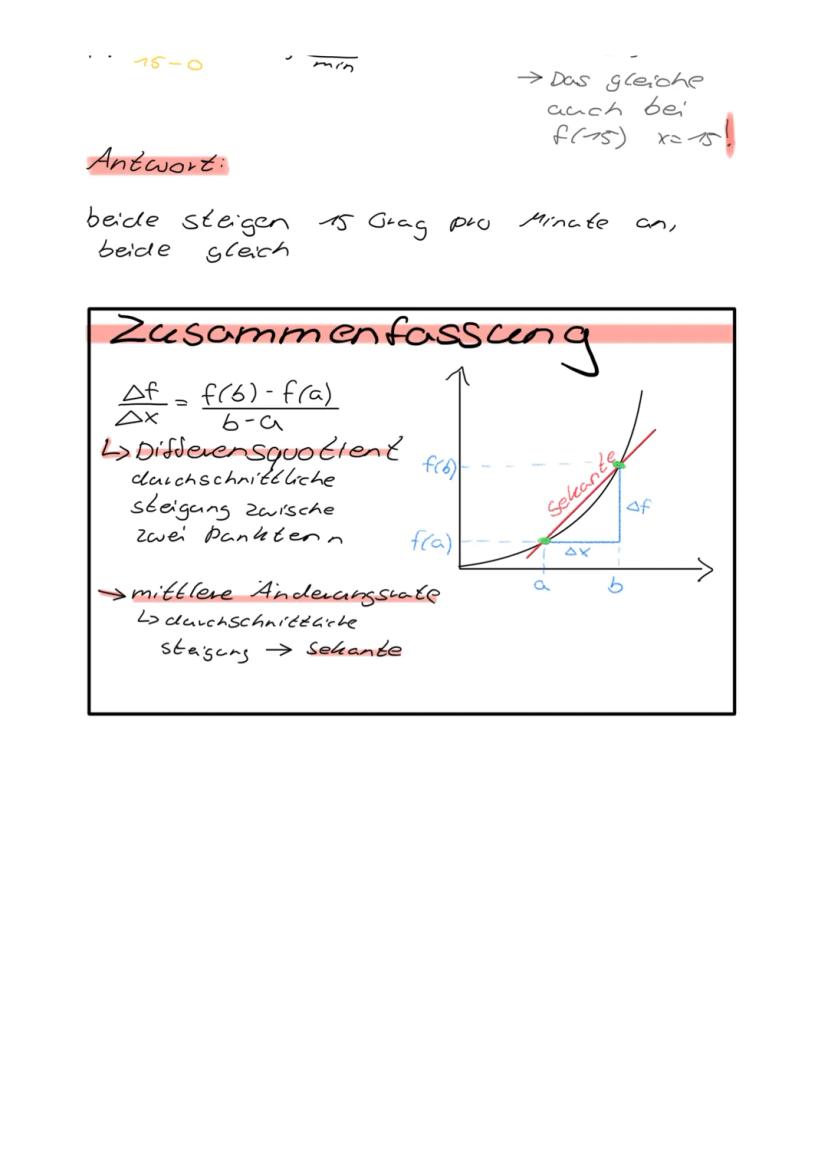 15-0
min
→ Das gleiche
auch bei
f(15) x=15!
Antwort:
beide steigen 15 Grag pro Minate an,
beide gleich
Zusammenfassung
Δf/Δx = f(b) - f(a)/b-a
↳ Differensquotient
durchschnittliche
steigung zwische
zwei Pankten n
→ mittlere Änderungsrate
↳ durchschnittliche
steigung → Sekante
f(b)
f(a)
Sekante
Δf
Δx
a
b